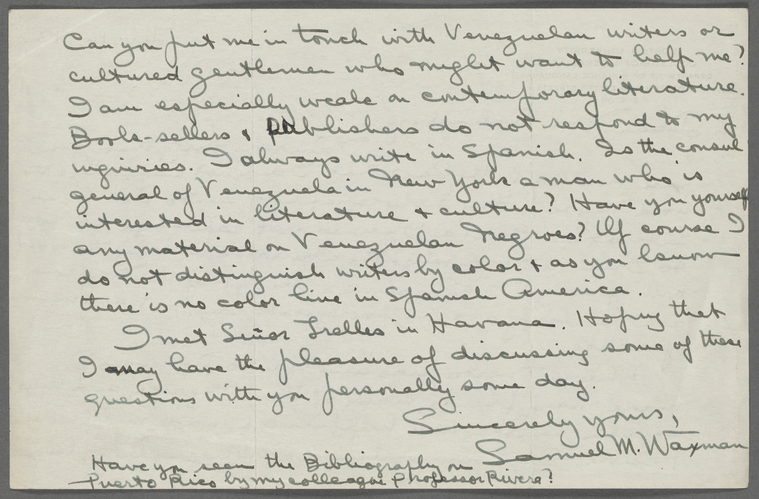 Can you put me in touch with Venezuelan writers or
cultured gentlemen who might want to help me?
I am especially weak on contemporary literature.
Book-sellers & publishers do not respond to my
inquiries. I always write in Spanish. Is the consul
general of Venezuela in New York a man who is
interested in literature & culture? Have you yourself
any material on Venezuelan Negroes? Of course I
do not distinguish writers by color & as you know
there is no color line in Spanish America.
I met Señor Trelles in Havana. Hoping that
I may have the pleasure of discussing some of these
questions with you personally some day.
Sincerely yours,
Samuel M. Waxman
Have you seen the Bibliography on
Puerto Rico by my colleague Professor Rivera?